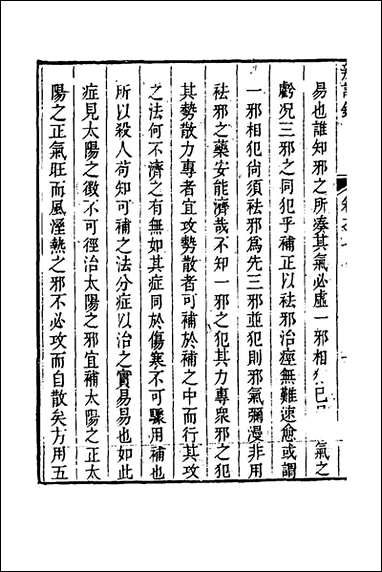 易也誰知邪之所湊其氣必虛一邪相犯已 氣之
虧况三邪之同犯乎補正以祛邪治痙無難速愈或謂
一邪相犯尙須祛邪爲先三邪並犯則邪氣彌漫非用
祛邪之藥安能濟哉不知一邪之犯其力專衆邪之犯
其勢散力專者宜攻勢散者可補於補之中而行其攻
之法何不濟之有無如其症同於傷寒不可驟用補也
所以殺人苟知可補之法分症以治之實易易也如此
症見太陽之徵不可徑治太陽之邪宜補太陽之正太
陽之正氣旺而風溼熱之邪不必攻而自散矣方用五